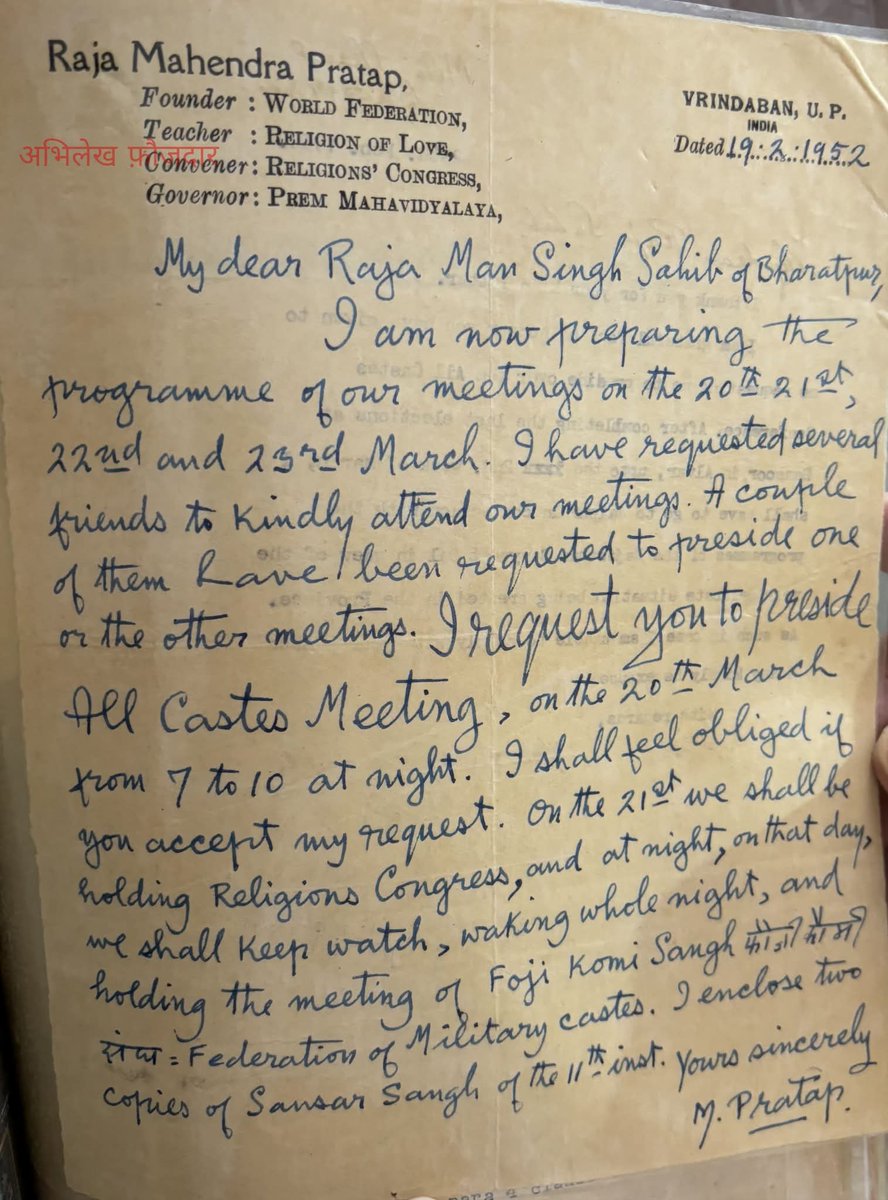 Raja Mahendra Pratap,
Founder : WORLD FEDERATION,
Teacher : RELIGION OF LOVE,
Convener: RELIGIONS' CONGRESS,
Governor: PREM MAHAVIDYALAYA,
अभिलेख फ़ौजदार
VRINDABAN, U. P.
INDIA
Dated 19.2.1952
My dear Raja Man Singh Sahib of Bharatpur,
I am now preparing the
programme of our meetings on the 20th 21st,
22nd and 23rd March. I have requested several
friends to kindly attend our meetings. A couple
of them have been requested to preside one
or the other meetings. I request you to preside
All Castes Meeting, on the 20th March
from 7 to 10 at night. I shall feel obliged if
you accept my request. On the 21st we shall be
holding Religions Congress, and at night, on that day,
we shall keep watch, waking whole night, and
holding the meeting of Foji Komi Sangh फौजी कौमी
संघ = Federation of Military castes. I enclose two
copies of Sansar Sangh of the 11th inst. Yours sincerely
M. Pratap.